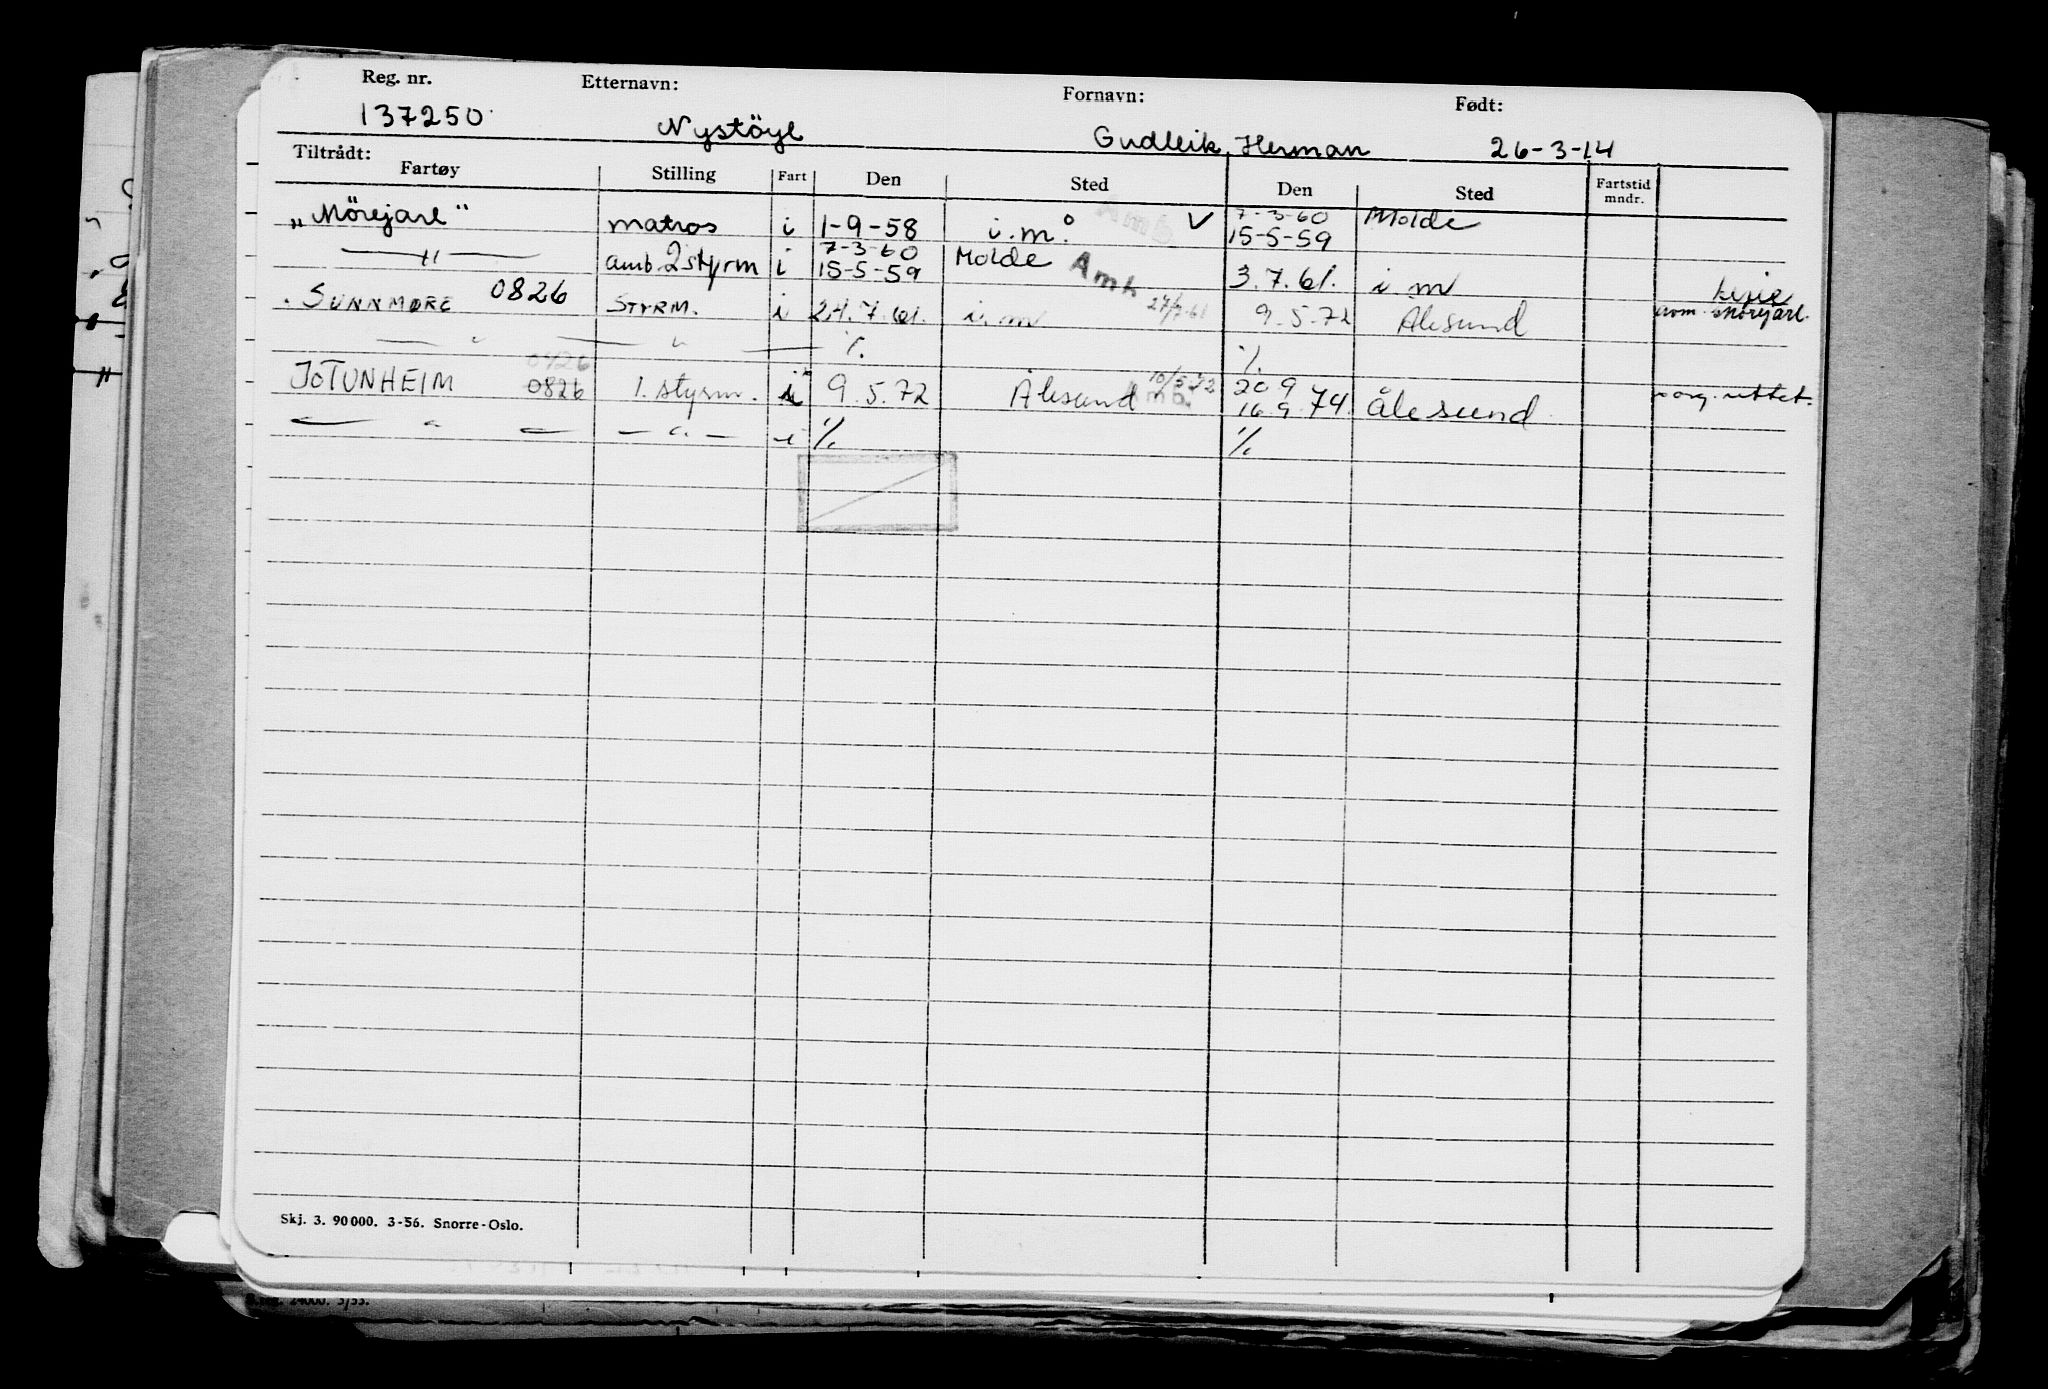 Reg. nr. Etternavn: Fornavn: Født:
137250 Nystöyl Gudleik, Herman 26-3-14
Tiltrådt:
Fartøy Stilling Fart Den Sted Den Sted Fartstid mndr.
7-3-60
"Mörejarl" matros i 1-9-58 i.m. Amb V 15-5-59 Molde
7-3-60
—"— amb. 2styrm i 15-5-59 Molde Amk 3.7.61. i.m
SUNNMØRE 0826 STYRM. i 24.7.61. i.m 9.5.72 Ålesund
— " — " — %. %.
0426
JOTUNHEIM 0826 1. styrm. i 9.5.72 Ålesund 10/5-72 Amb. 20 9
16 9 74. Ålesund
— " — — " — i %. %.
Skj. 3. 90000. 3-56. Snorre-Oslo.
24000. 3/53.